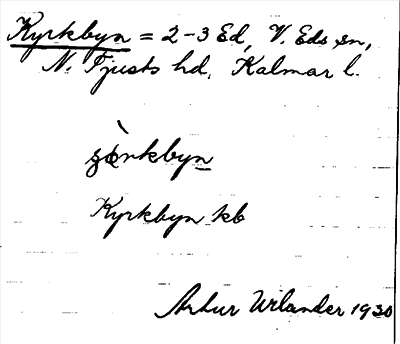 Kyrkbyn = 2-3 Ed, V. Eds sn,
N. Tjusts hd, Kalmar l.
Kyrkbyn kb
Arthur Urlander 1930